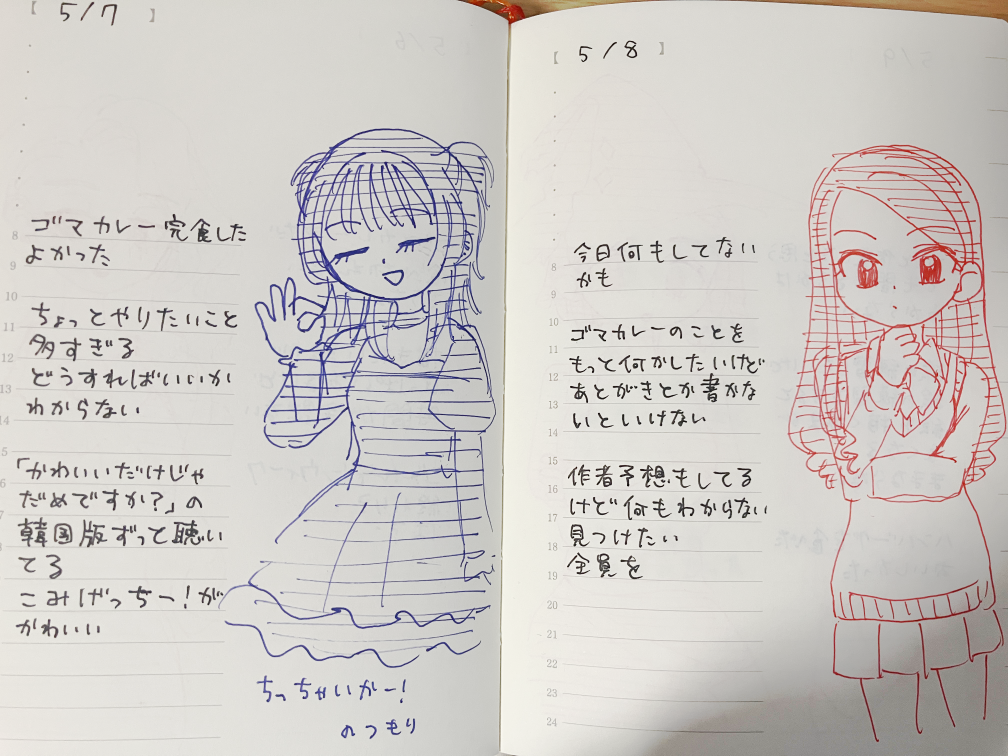 【 5/7 】
ゴマカレー完食した
よかった
ちょっとやりたいこと
多すぎる
どうすればいいか
わからない
「かわいいだけじゃ
だめですか?」の
韓国版ずっと聴い
てる
こみげっちー!が
かわいい
ちっちゃいかー!
のつもり
【 5/8 】
今日何もしてない
かも
ゴマカレーのことを
もっと何かしたいけど
あとがきとか書かな
いといけない
作者予想もしてる
けど何もわからない
見つけたい
全員を
8
9
10
11
12
13
14
8
9
10
11
12
13
14
15
16
17
18
19
20
21
22
23
24